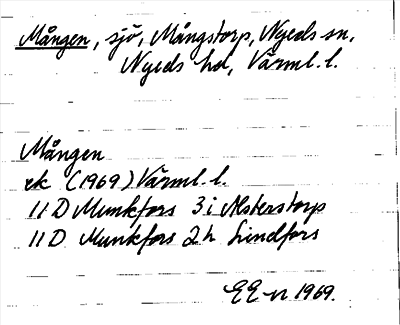 Mången, sjö, Mångstorp, Nyeds sn,
Nyeds hd, Värml. l.
Mången
ek (1969) Värml. l.
11 D Munkfors 3 i Alsterstorp
11 D Munkfors 2 h Lindfors
EE-n 1969.